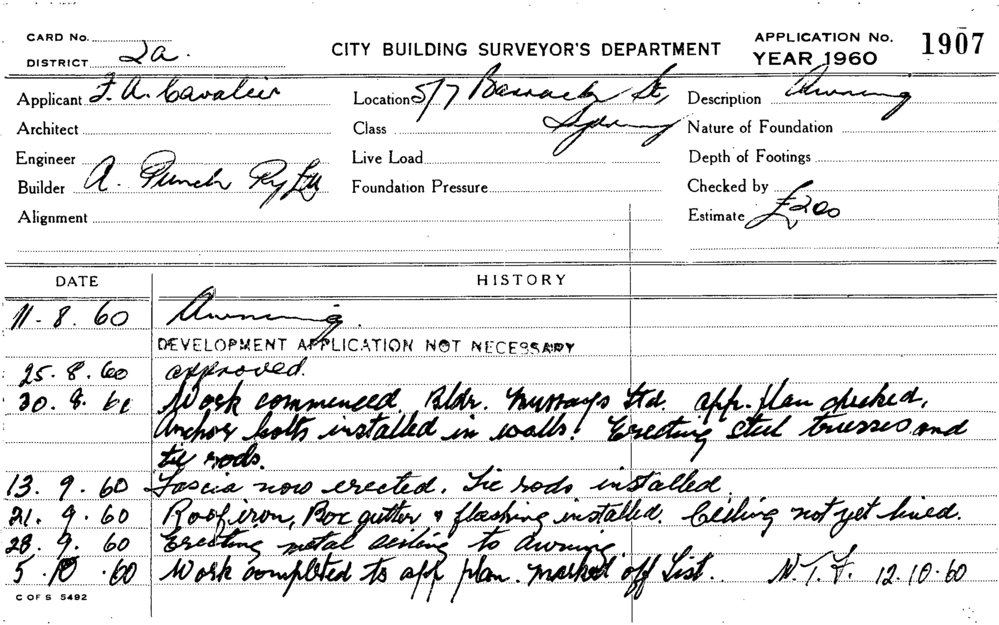 CARD No.
DISTRICT 2a.
CITY BUILDING SURVEYOR'S DEPARTMENT
APPLICATION No. 1907
YEAR 1960
Applicant F. A. Cavalier
Location 5/7 Barrack St,
Sydney
Description Awning
Architect
Class
Nature of Foundation
Engineer
Live Load
Depth of Footings
Builder A. Punch Pty Ltd
Foundation Pressure
Checked by
Alignment
Estimate £200
DATE HISTORY
11. 8. 60 Awning.
DEVELOPMENT APPLICATION NOT NECESSARY
25. 8. 60 approved.
30. 8. 60 Work commenced. Bldr. Murrays Ltd. app. plan checked,
Anchor bolts installed in walls. Erecting steel trusses and
tie rods.
13. 9. 60 Fascia now erected. Tie rods installed
21. 9. 60 Roof iron, Box gutter & flashing installed. Ceiling not yet lined.
28. 9. 60 Erecting metal ceiling to awning.
5. 10. 60 Work completed to app plan. marked off List. N.T.F. 12.10.60
C OF S 5492